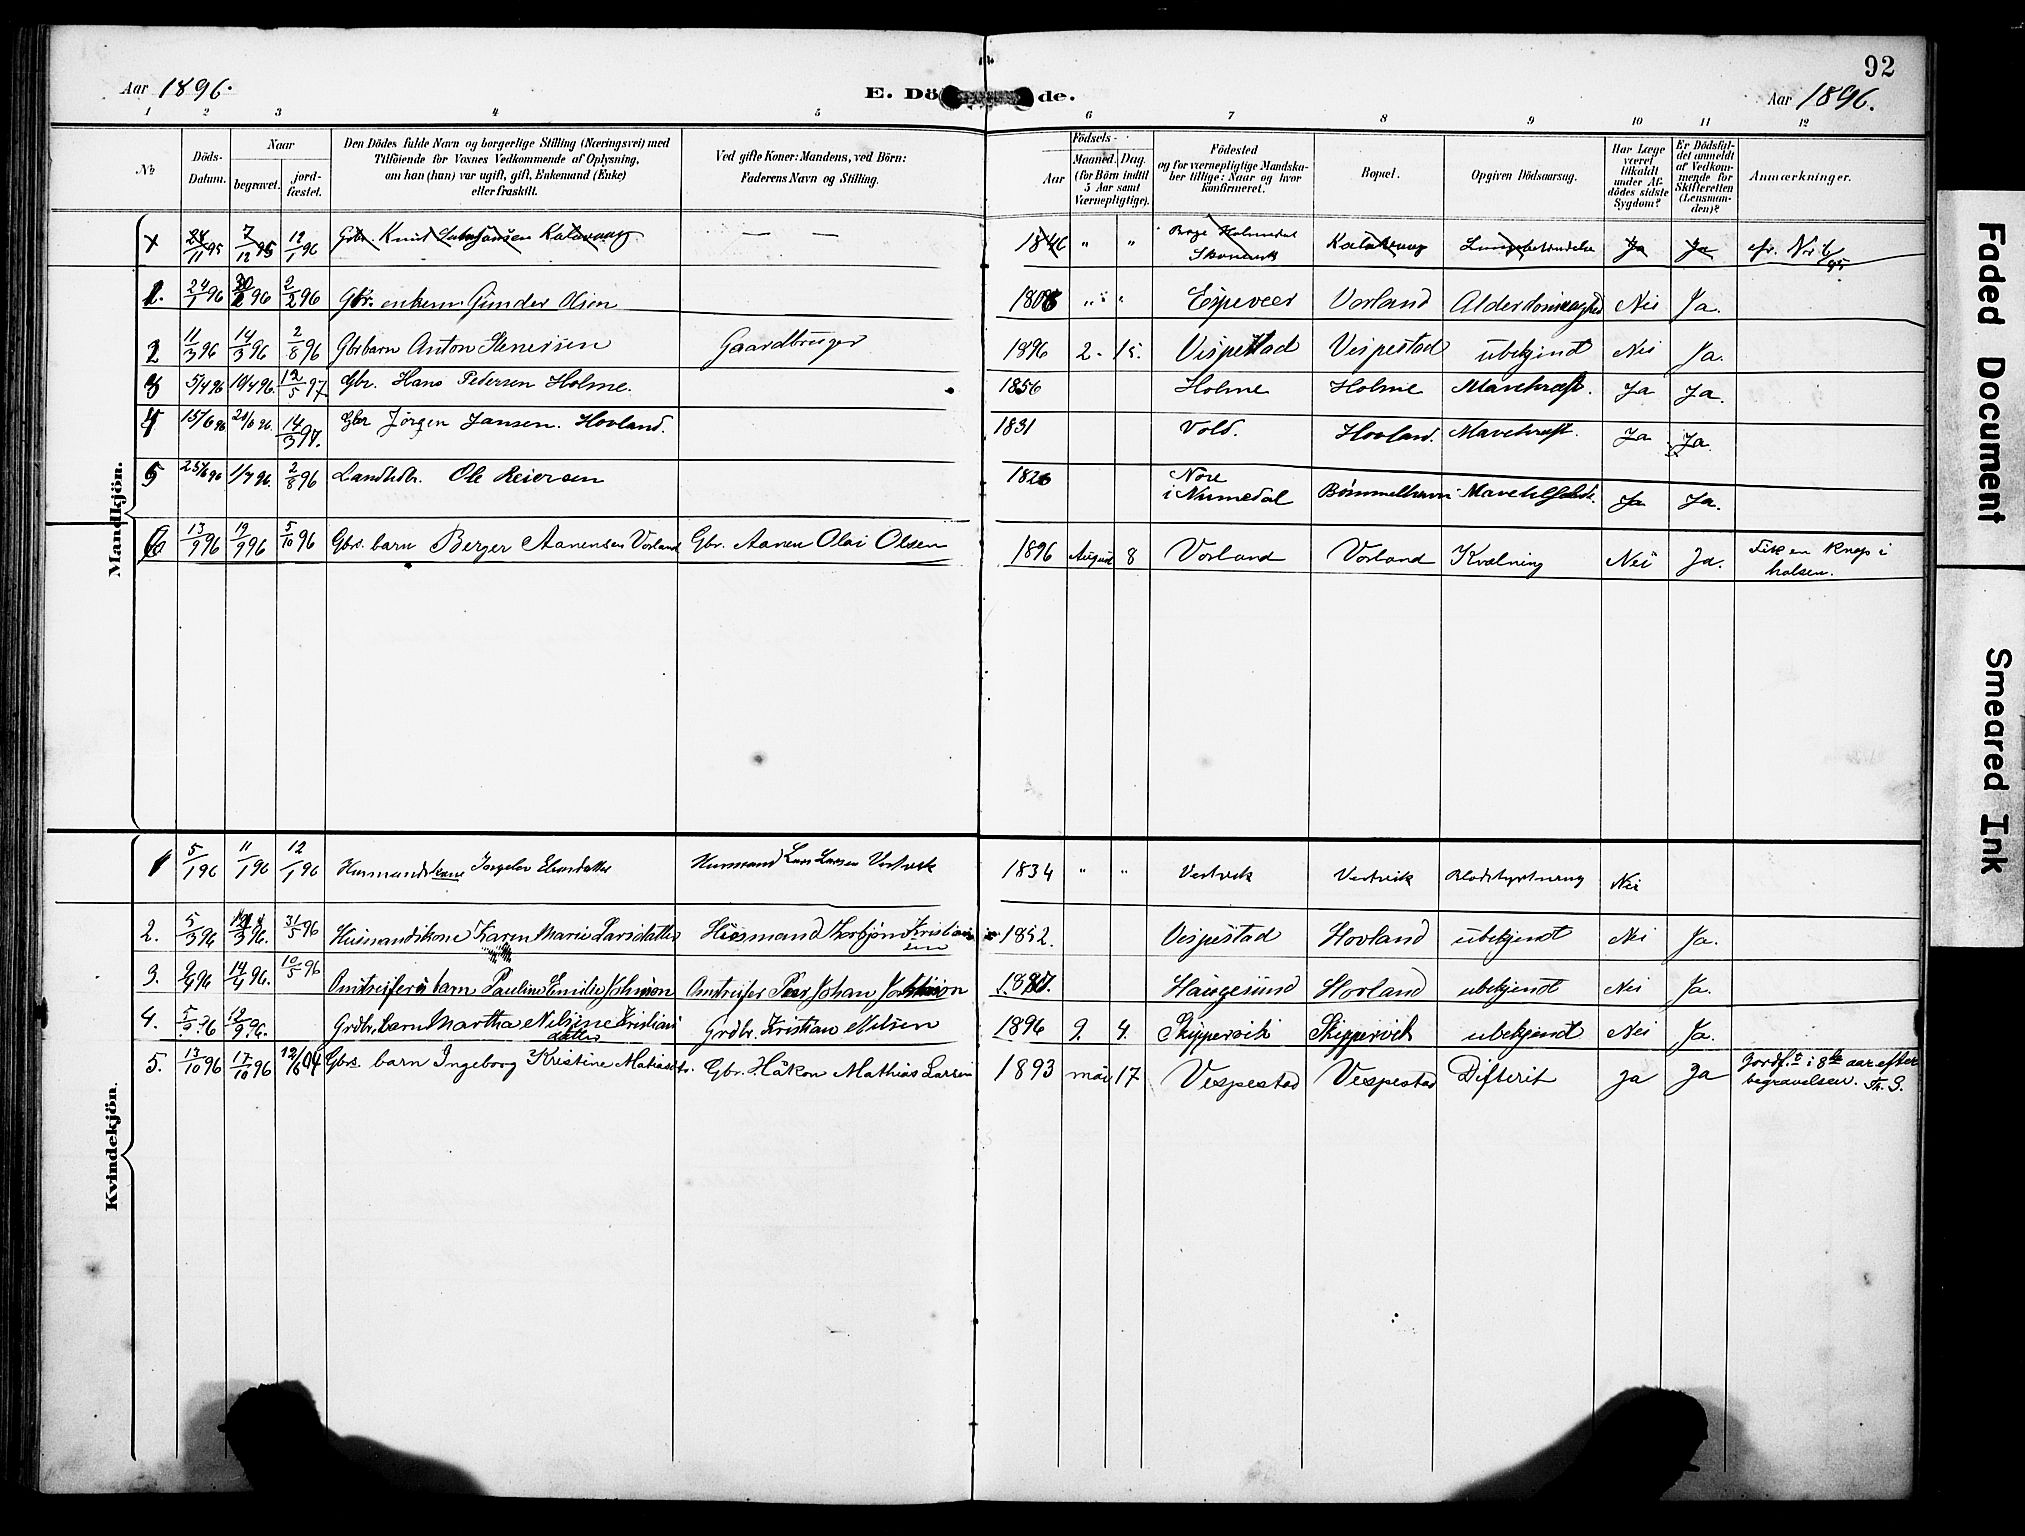 92
Aar 1896.
E. Dö de.
Aar 1896.
1 2 3 4 5 6 7 8 9 10 11 12
No
Döds-Datum.
Naar
begravet.
jord-fæstet.
Den Dödes fulde Navn og borgerlige Stilling (Næringsvei) med
Tilföiende for Voxnes Vedkommende af Oplysning,
om han (hun) var ugift, gift, Enkemand (Enke)
eller fraskilt.
Ved gifte Koner: Mandens, ved Börn:
Faderens Navn og Stilling.
Födsels-
Aar
Maaned. Dag.
(for Börn indtil
5 Aar samt
Værnepligtige).
Födested
og for værnepligtige Mandska-
ber tillige: Naar og hvor
konfirmeret.
Bopæl.
Opgiven Dödsaarsag.
Har Læge
været
tilkaldt
under Af-
dödes sidste
Sygdom?
Er Dödsfal-
det anmeldt
af Vedkom-
mende for
Skifteretten
(Lensman-
den)?
Anmærkninger.
Mandkjön.
x 24/11 95 7/12 95 12/1 96 Gbr. Knud Kalavaag — — 1846 " " Kalavaag Lungebetændelse Ja Ja cfr. No 6/95
1. 24/1 96 2/2 96 Gbr. enkem. Gunder Olson 1808 " " Espeveer Vorland Alderdomssvaghed Nei Ja.
2 11/3 96 14/3 96 2/8 96 Gbrbarn Anton Stenersen Gaardbruger 1896 2. 15. Vespestad Vespestad ubekjendt Nei Ja.
3 5/4 96 10/4 96. 12/5 97. Gbr. Hans Pedersen Holme. 1856 Holme Holme Mavekræft. Ja Ja.
4 15/6 96 21/6 96. 14/3 97. Gbr Jörgen Jansen. Hovland. 1831 Vold. Hovland. Mavekræft. Ja Ja.
5 25/6 96 1/7 96. 2/8 96 Landhdr. Ole Reiersen 1826 Nore
i Numedal Bömmelhavn Ja Ja.
6 13/9 96 19/9 96 5/10 96 Gbrs. barn Berger Aanensen Vorland Gbr. Aanen Olai Olsen 1896 August 8 Vorland Vorland Kvælning Nei Ja. Fik en Knap i
halsen.
Kvindekjön.
1 5/1 96 11/1 96 12/1 96 Husmandskone Ingebor Husmand Lars Larsen Vestvik 1834 " " Vestvik Vestvik Blodstyrtning Nei
2. 5/3 96 /3 96. 31/5 96 Husmandskone Karen Marie Larsdatter Husmand Torbjön Kristian
sen 1852. Vespestad Hovland ubekjendt Nei Ja.
3. 9/4 96 14/4 96. 10/5 96 barn Pauline Emilie Johnson Peer Johan Johnson 1887. Haugesund Hovland ubekjendt Nei Ja.
4. 5/9 96 12/9 96. Grdbr. barn Martha Nilsine Kristians
datter Grdbr. Kristian Nilsen 1896 9. 4. Skippervik Skippervik ubekjendt Nei Ja.
5. 13/10 96 17/10 96 12/6 04 Gbrs. barn Ingeborg Kristine Matiasdtr. Gbr. Håkon Mathias Larsen 1893 mai 17 Vespestad Vespestad Difterit Ja Ja Jordf. i 8de aar efter
begravelsen. Th. S.
Faded Document
Smeared Ink